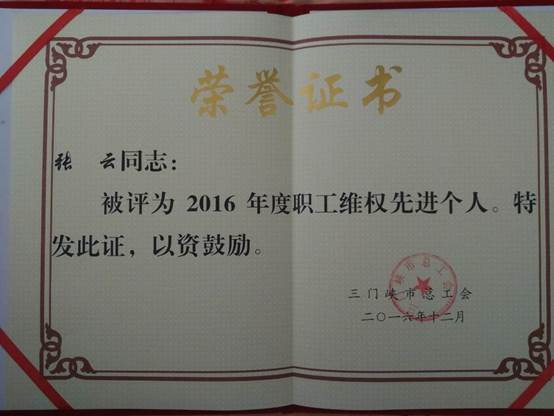 荣誉证书
张 云同志：
被评为 2016 年度职工维权先进个人。特
发此证，以资鼓励。
三门峡市总工会
二〇一六年十二月